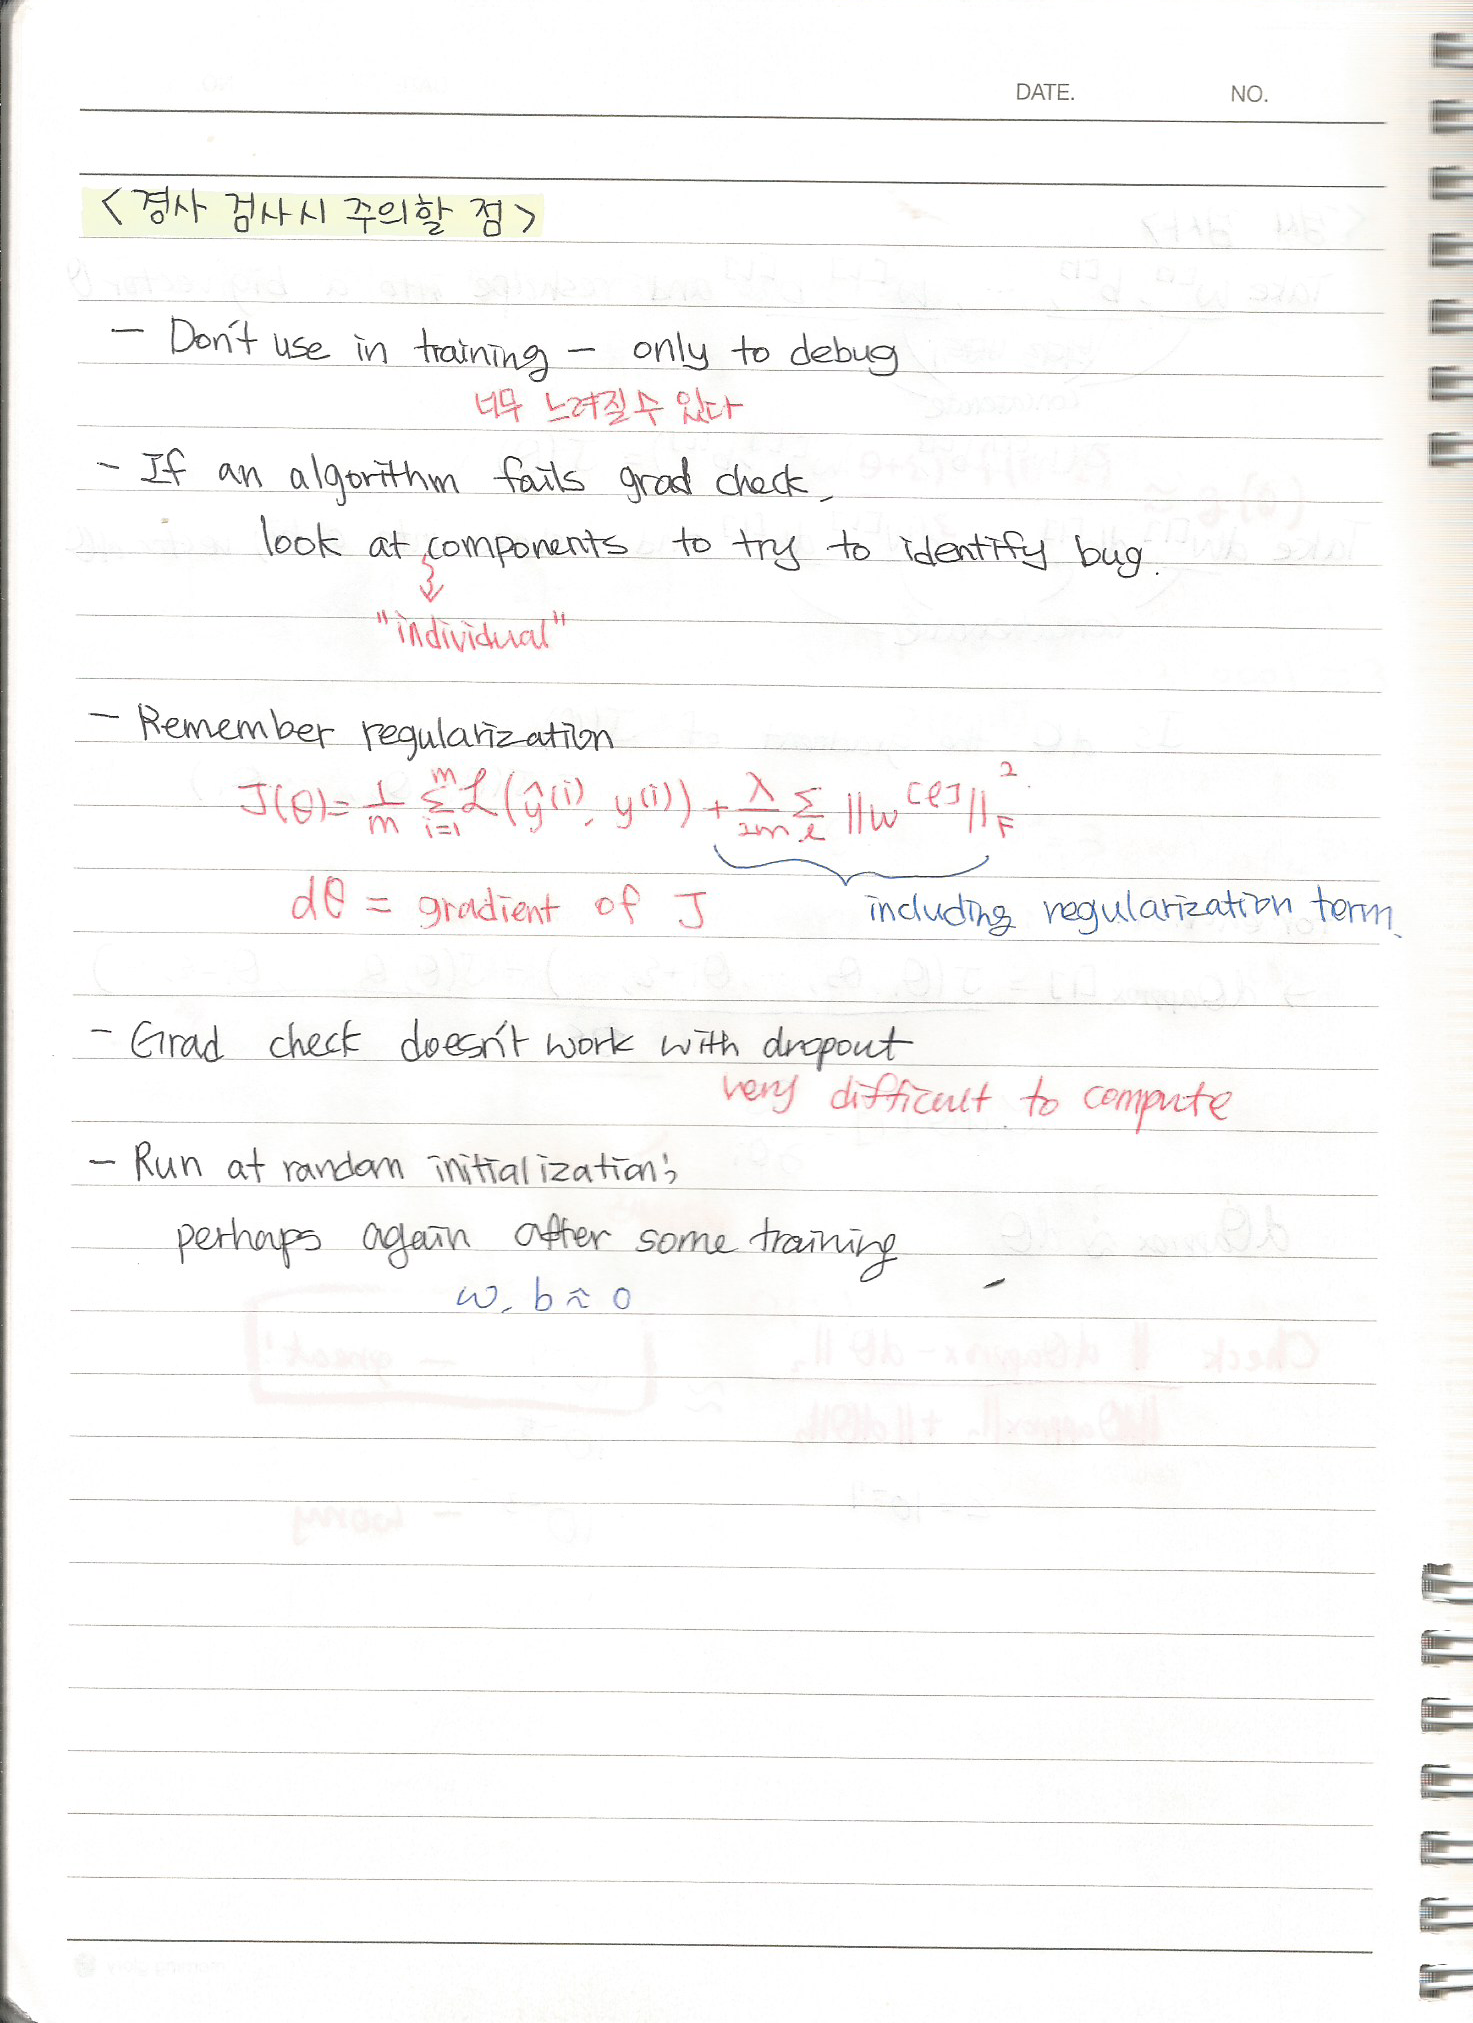 DATE. NO.
<경사 검사시 주의할 점>
- Don't use in training - only to debug
너무 느려질 수 있다
- If an algorithm fails grad check,
look at components to try to identify bug.
"individual"
- Remember regularization
J(θ) = 1/m Σ_{i=1}^{m} ℒ(ŷ^(i), y^(i)) + λ/2m Σ_l ||w^[l]||_F^2
dθ = gradient of J
including regularization term.
- Grad check doesn't work with dropout
very difficult to compute
- Run at random initialization;
perhaps again after some training
w, b ≈ 0